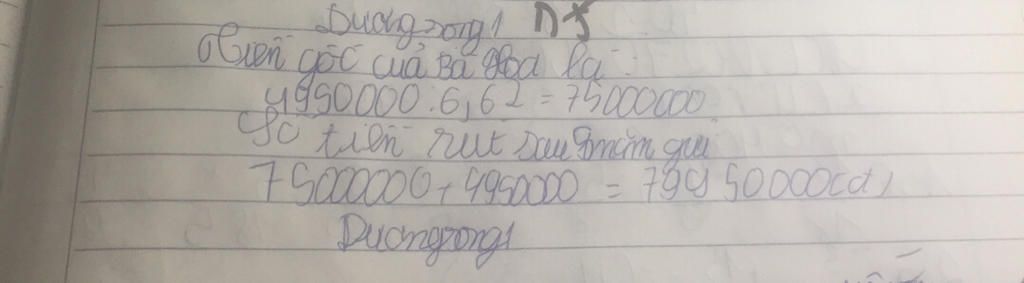 Duongrong1
Tiền gốc của Bà Hoa là :
4950000.6,62 = 75000000
Số tiền rút sau 1 năm gửi
75000000 + 4950000 = 79950000(đ)
Duongrong1